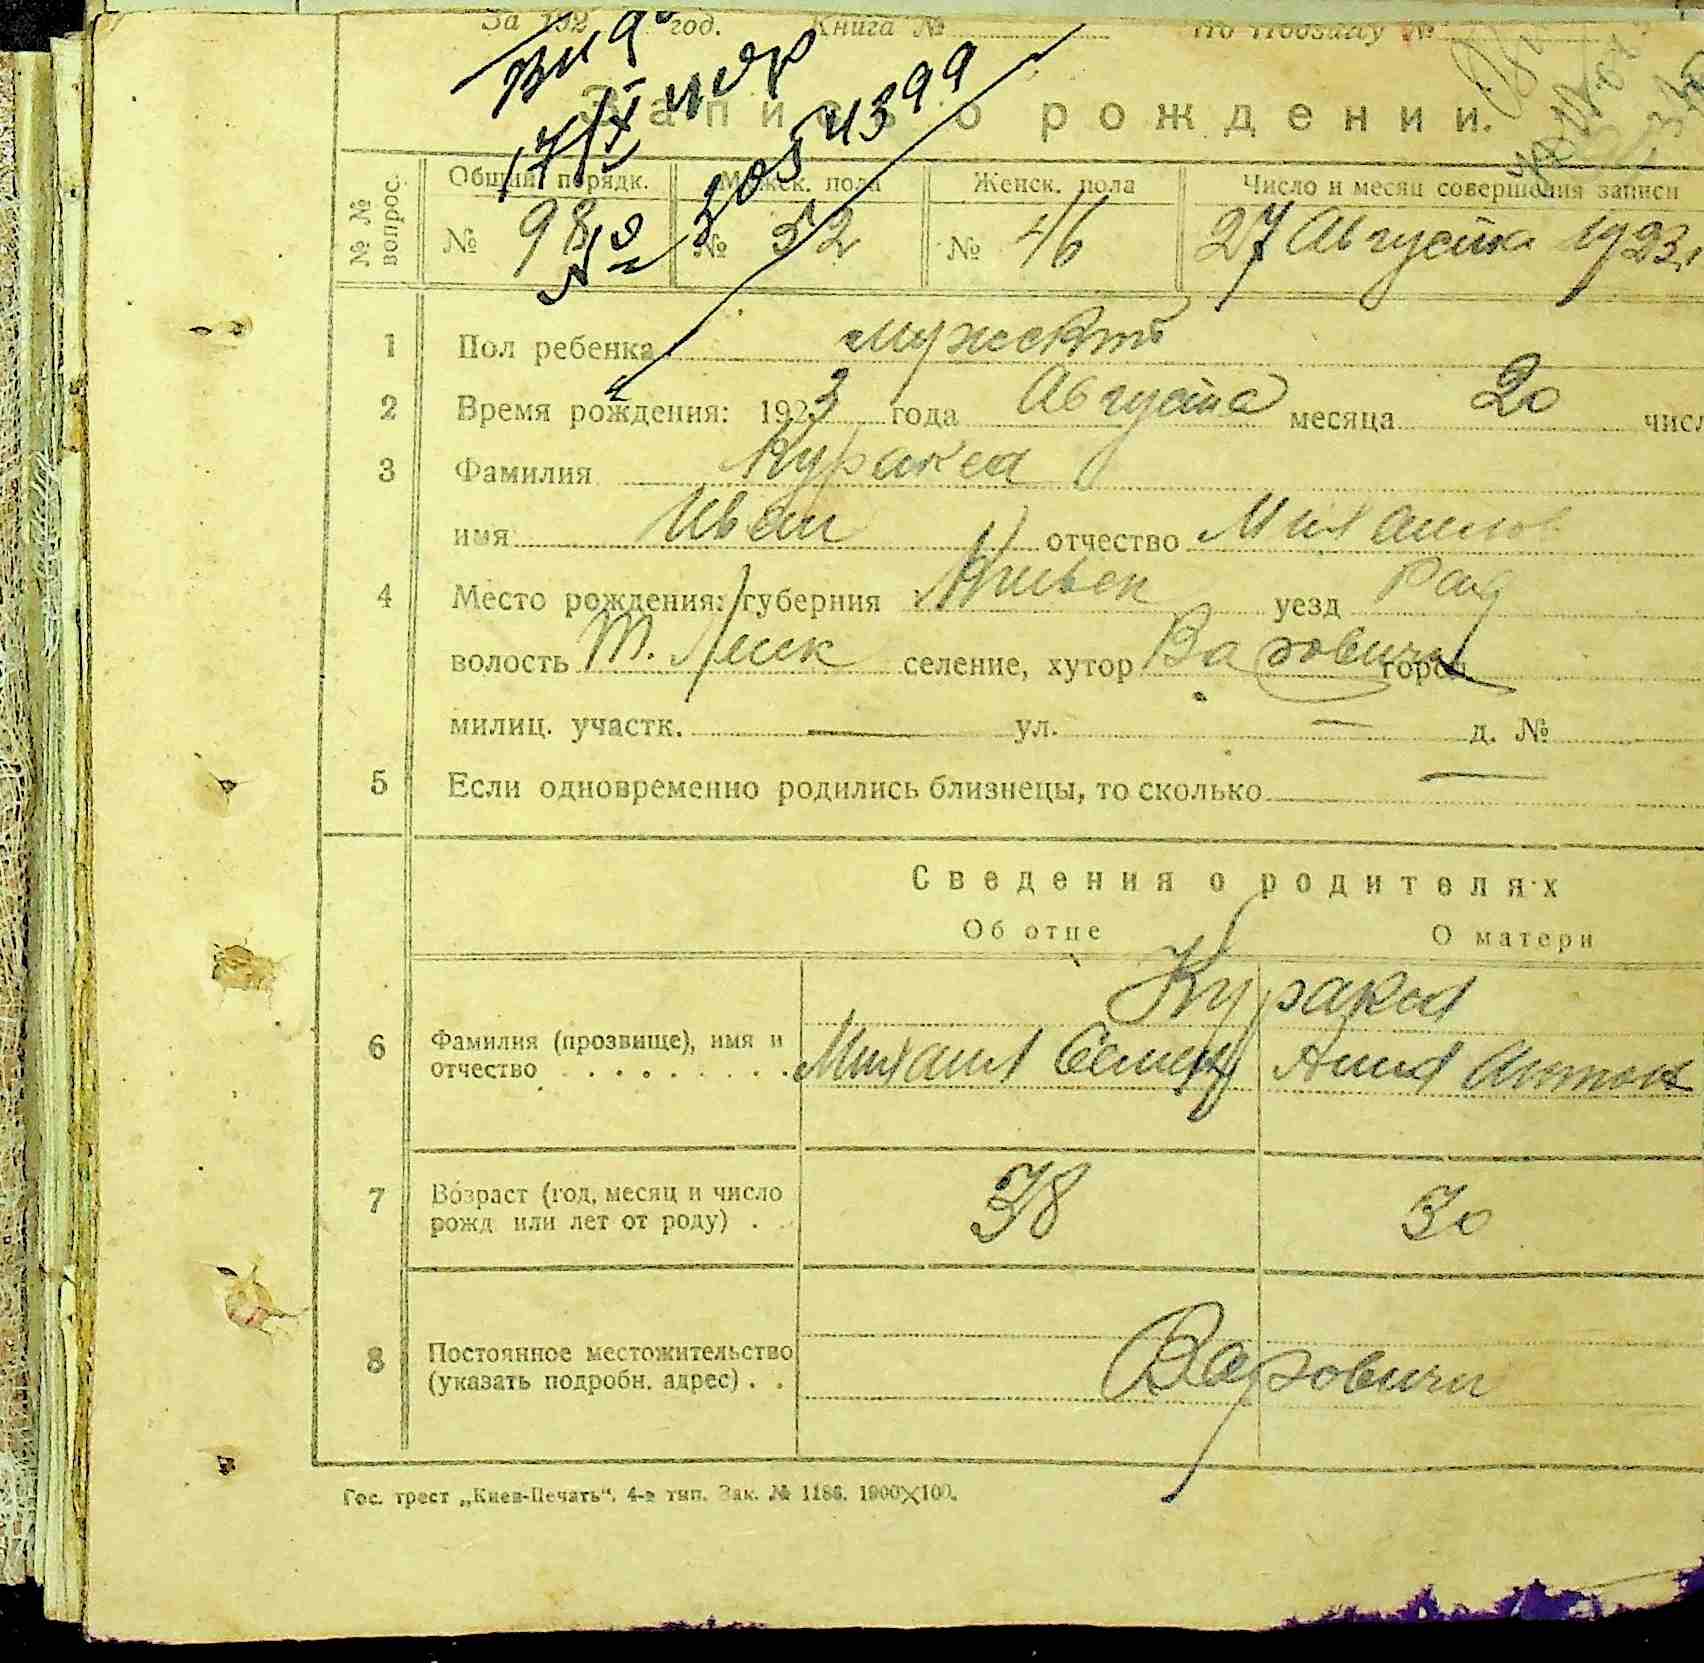 За 192 год. Книга №
Запись о рождении.
№ № вопрос.
Общий порядк. Мужск. пола Женск. пола Число и месяц совершения записи
№ 98 № 52 № 46 27 Августа 1923
1 Пол ребенка мужской
2 Время рождения: 1923 года Августа месяца 20 числ
3 Фамилия
имя Иван отчество Михайлов
4 Место рождения: губерния Киевск уезд Рад
волость селение, хутор Варовичи город
милиц. участк. — ул. — д. №
5 Если одновременно родились близнецы, то сколько —
Сведения о родителях
Об отце О матери
6 Фамилия (прозвище), имя и
отчество Михаил Семен Анна Антон
7 Возраст (год, месяц и число
рожд или лет от роду) 38 30
8 Постоянное местожительство
(указать подробн. адрес) Варовичи
Гос. трест „Киев-Печать“. 4-я тип. Зак. № 1186. 1900×100.